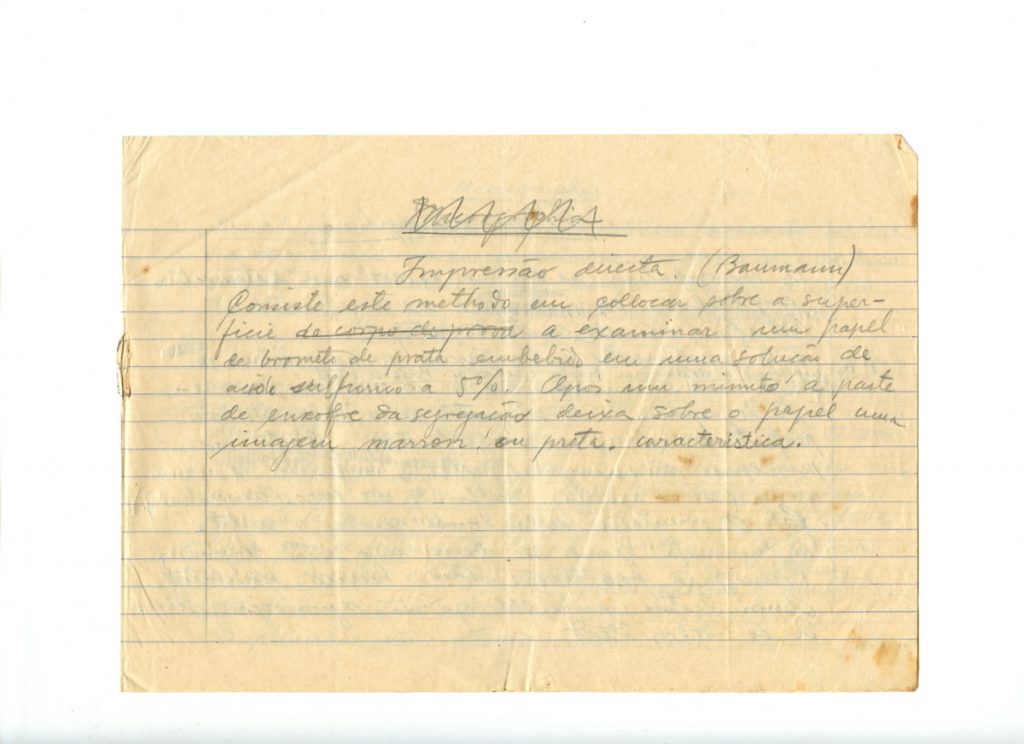 Micrographia
Impressão directa. (Baumann)
Consiste este methodo em collocar sobre a super-
ficie de corpo de prova a examinar um papel
de brometo de prata embebido em uma solução de
acido sulfurico a 5%. Apos um minuto a parte
de enxofre da segregação deixa sobre o papel uma
imagem marron ou preta, caracteristica.